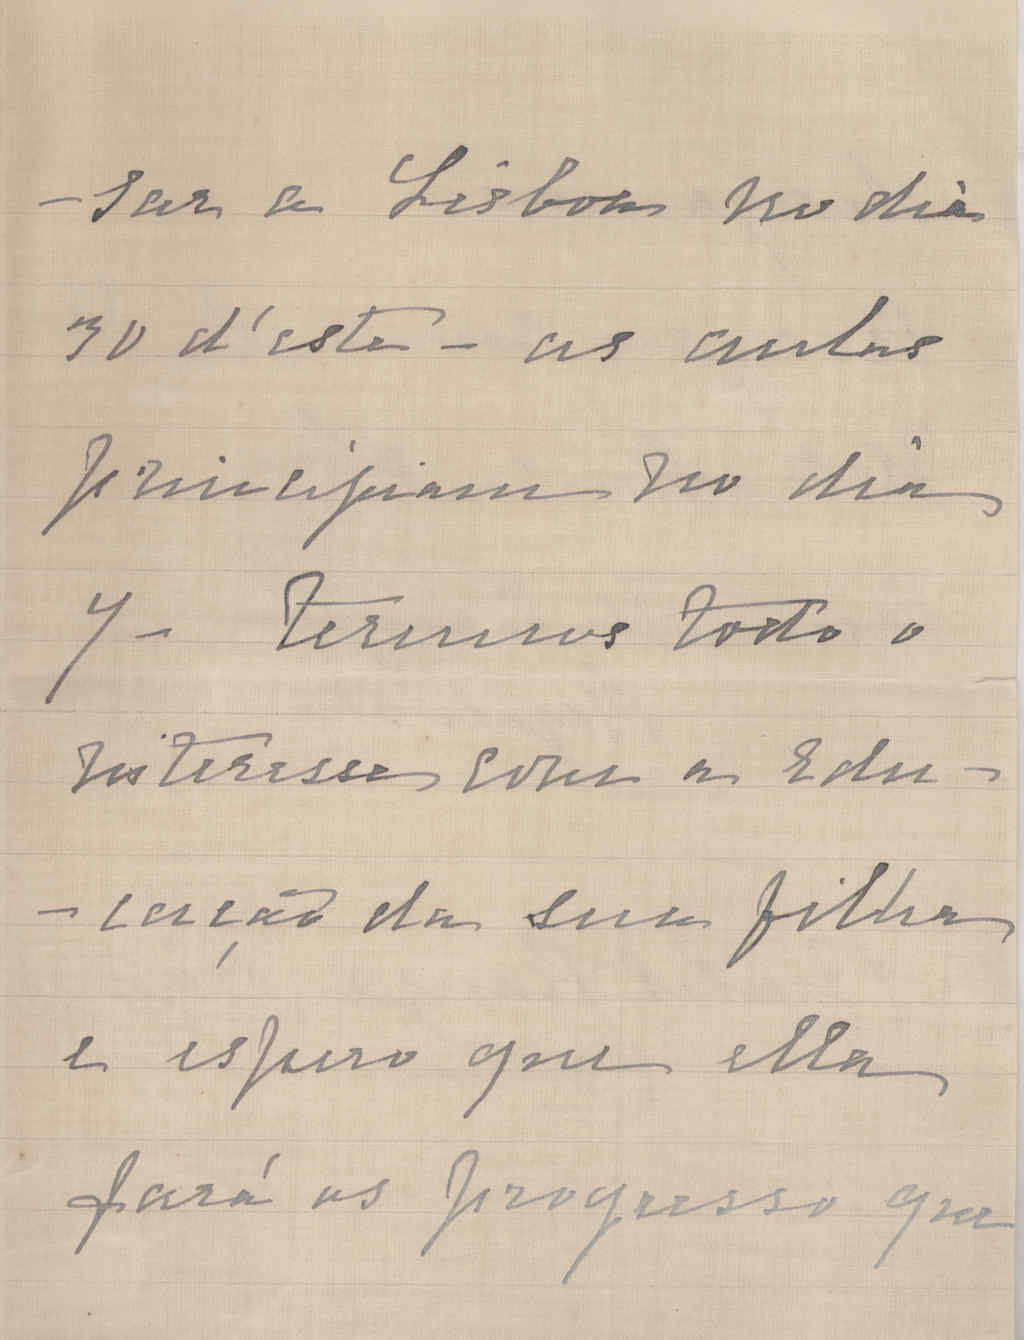 -sar a Lisboa no dia
30 d'este - as aulas
principiam no dia
7 - teremos todo o
interesse com a edu-
-cação da sua filha
e espero que ella
fará os progresso que